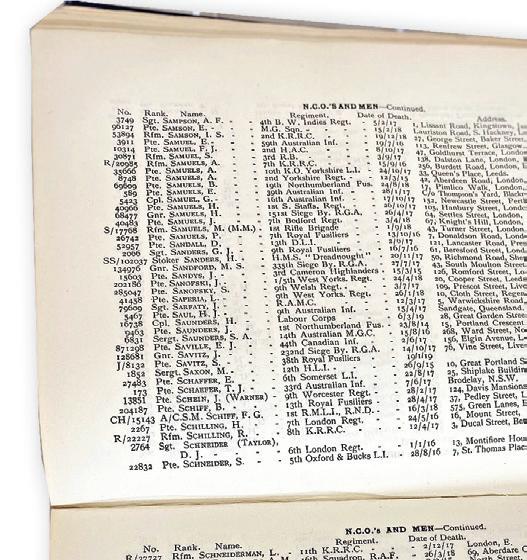 N.C.O.'S AND MEN—Continued.
No. Rank. Name. Regiment. Date of Death. Address.
3749 Sgt. SAMPSON, A. F. 4th B. W. Indies Regt. 5/2/17 1, Lissant Road, Kingstown,
96127 Pte. SAMSON, E. M.G. Sqn. 15/2/18 Lauriston Road, S. Hackney,
53894 Rfm. SAMSON, I. S. 2nd K.R.R.C. 19/12/18 27, George Street, Baker Street,
3911 Pte. SAMUEL, E. 59th Australian Inf. 19/7/16 113, Renfrew Street, Glasgow,
10314 Pte. SAMUEL, F. J. 2nd H.A.C. 8/10/17 7, Goldhurst Terrace, London
30871 Rfm. SAMUEL, S. 3rd R.B. 3/9/17 138, Dalston Lane, London,
R/20985 Rfm. SAMUELS, A. 7th K.R.R.C. 15/9/16 356, Burdett Road, London,
35666 Pte. SAMUELS, A. 10th K.O. Yorkshire L.I. 24/10/17 33, Queen's Place, Leeds.
8748 Pte. SAMUELS, A. 2nd Yorkshire Regt. 12/3/15 42, Aberdeen Road, London,
69609 Pte. SAMUELS, B. 19th Northumberland Fus. 24/8/18 17, Pimlico Walk, London,
589 Pte. SAMUELS, E. 39th Australian Inf. 28/11/17 C/o Thompson's Yard,
5423 Cpl. SAMUEL, G. 16th Australian Inf. 17/10/17 152, Newcastle Street,
40966 Pte. SAMUELS, H. 1st S. Staffs. Regt. 26/10/17 105, Hanbury Street, London,
68477 Gnr. SAMUELS, H. 151st Siege By. R.G.A. 26/4/17 64, Settles Street, London,
40483 Pte. SAMUELS, J. 7th Bedford Regt. 3/4/18 67, Knight's Hill, London,
S/17768 Rfm. SAMUELS, M. (M.M.) 1st Rifle Brigade 1/9/18 43, Turner Street, London,
26742 Pte. SAMUELS, 7th Royal Fusiliers 13/10/16 7, Donaldson Road, London,
52957 Pte. SANDALL, D. 13th D.L.I. 2/9/17 121, Lancaster Road,
2006 Sgt. SANDERS, G. 9th Royal Fusiliers 16/7/16 61, Beresford Street, London
SS/102037 Stoker SANDERS, H. H.M.S. "Dreadnought" 20/11/17 50, Richmond Road,
134976 Gnr. SANDIFORD, M. S. 335th Siege By. R.G.A. 27/7/17 43, South Moulton
15603 Pte. SANDYS, J. 3rd Cameron Highlanders 15/3/15 126, Romford Street,
202186 Pte. SANOFSKI, J. 1/5th West Yorks. 24/10/18 20, Cooper Street, Leeds
285047 Pte. SANOFSKY, S. 9th Welsh Regt. 3/7/17 109, Prescot Street,
41458 Pte. SAPERIA, L. 9th West Yorks. Regt. 26/1/18 10, Cloth Street,
79609 Sgt. SARPATY, R.A.M.C. 12/3/17 5, Warwickshire Road,
5467 Pte. SAUL, H. J. 9th Australian Inf. 13/4/17 Sandgate, Queensland.
16738 Cpl. SAUNDERS, H. Labour Corps 6/3/19 28, Great Garden Street
9463 Pte. SAUNDERS, J. 1st Northumberland Fus. 23/8/14 15, Portland Crescent,
6831 Sergt. SAUNDERS, S. A. 4th Australian M.G.C. 15/8/16 268, Ward Street,
871298 Pte. SAVILLE, E. J. 44th Canadian Inf. 2/6/17 156, Elgin Avenue,
128681 Gnr. SAVITZ, J. 232nd Siege By. R.G.A. 14/10/17 76, Vine Street,
J/8132 Pte. SAVITZ, S. 38th Royal Fusiliers 19/1/19
1852 Sergt. SAXON, M. 12th H.L.I. 26/9/15 10, Great Portland
27483 Pte. SCHAFFER, E. 6th Somerset L.I. 22/8/17 25, Shiplake Buildings
173 Pte. SCHAIFER, T. J. 33rd Australian Inf. 7/6/17 Brodeley, N.S.W.
13851 Pte. SCHEIN, J. (WARNER) 9th Worcester Regt. 28/2/17 124, Davis Mansions
204187 Pte. SCHIFF, B. 13th Royal Fusiliers 28/4/17 37, Pedley Street,
CH/15143 A/C.S.M. SCHIFF, F. G. 1st R.M.L.I., R.N.D. 16/3/18 575, Green Lanes,
2267 Pte. SCHILLING, H. 7th London Regt. 24/5/16 16, Mount Street,
R/22227 Rfm. SCHILLING, R. 8th K.R.R.C. 12/4/17 3, Ducal Street,
2764 Sgt. SCHNEIDER (TAYLOR),
D. J. 6th London Regt. 1/1/16 13, Montifiore
22832 Pte. SCHNEIDER, S. 5th Oxford & Bucks L.I. 28/8/16 7, St. Thomas
N.C.O.'s AND MEN—Continued.
No. Rank. Name. Regiment. Date of Death.
Rfm. SCHNEIDERMAN, L. 11th K.R.R.C. 2/12/17 London, E.
Squadron, R.A.F. 26/3/18 69,